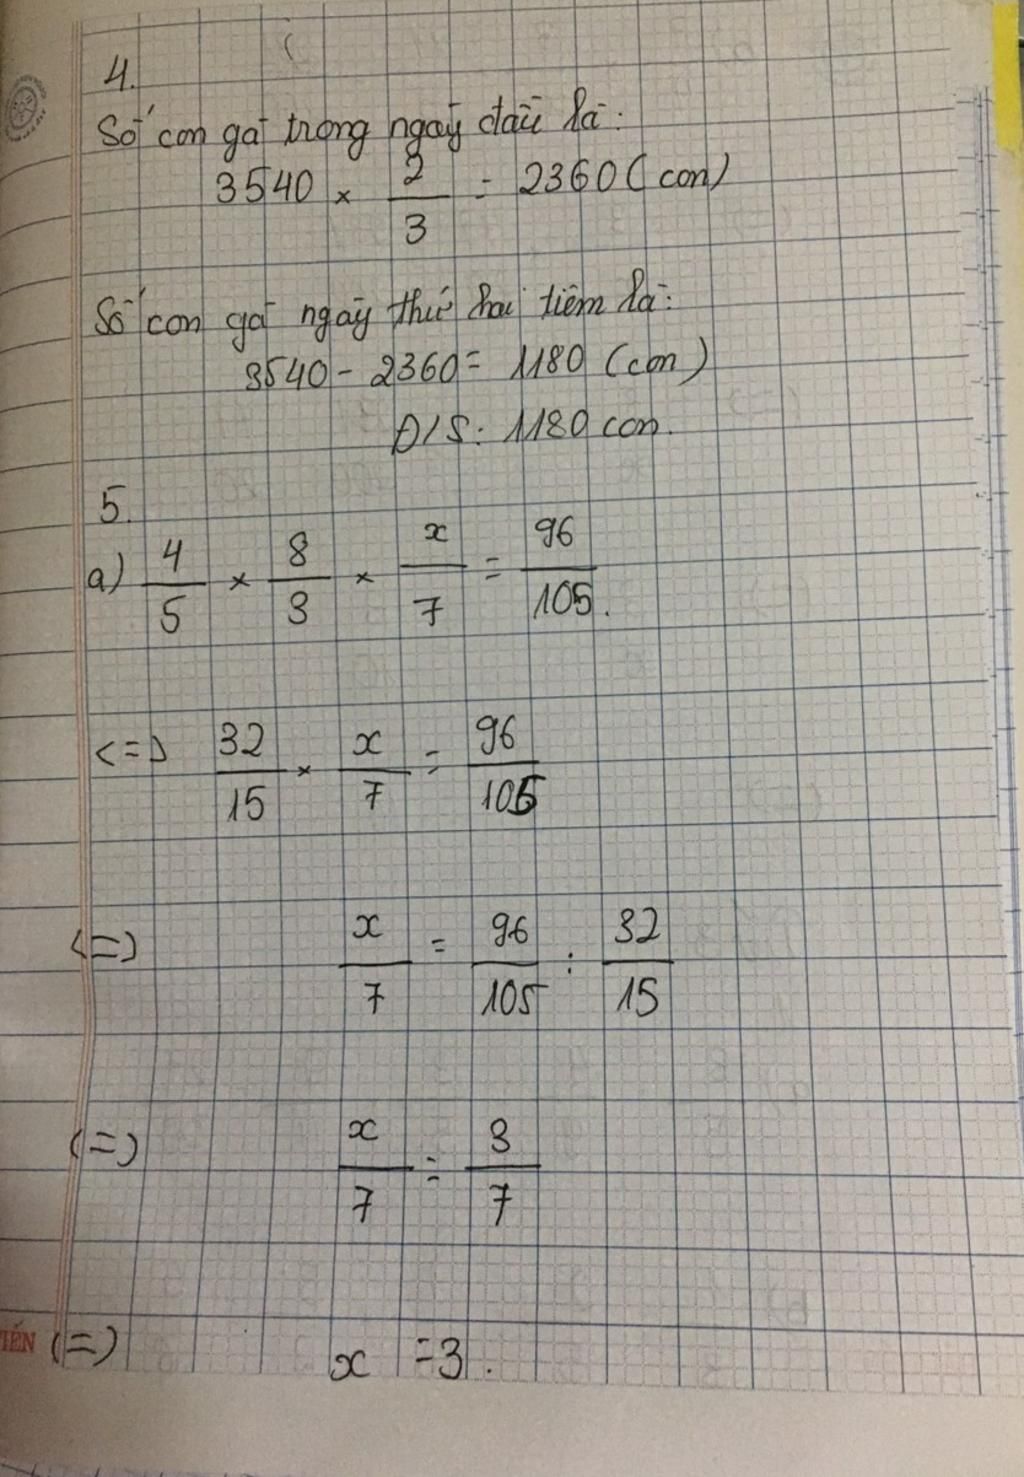 4.
Số con gà trong ngày đầu là:
3540 × 2/3 = 2360 (con)
Số con gà ngày thứ hai tiêm là:
3540 - 2360 = 1180 (con)
Đ/S: 1180 con.
5.
a) 4/5 × 8/3 × x/7 = 96/105.
<=> 32/15 × x/7 = 96/105
(=) x/7 = 96/105 : 32/15
(=) x/7 = 3/7
(=) x = 3.
TIẾN